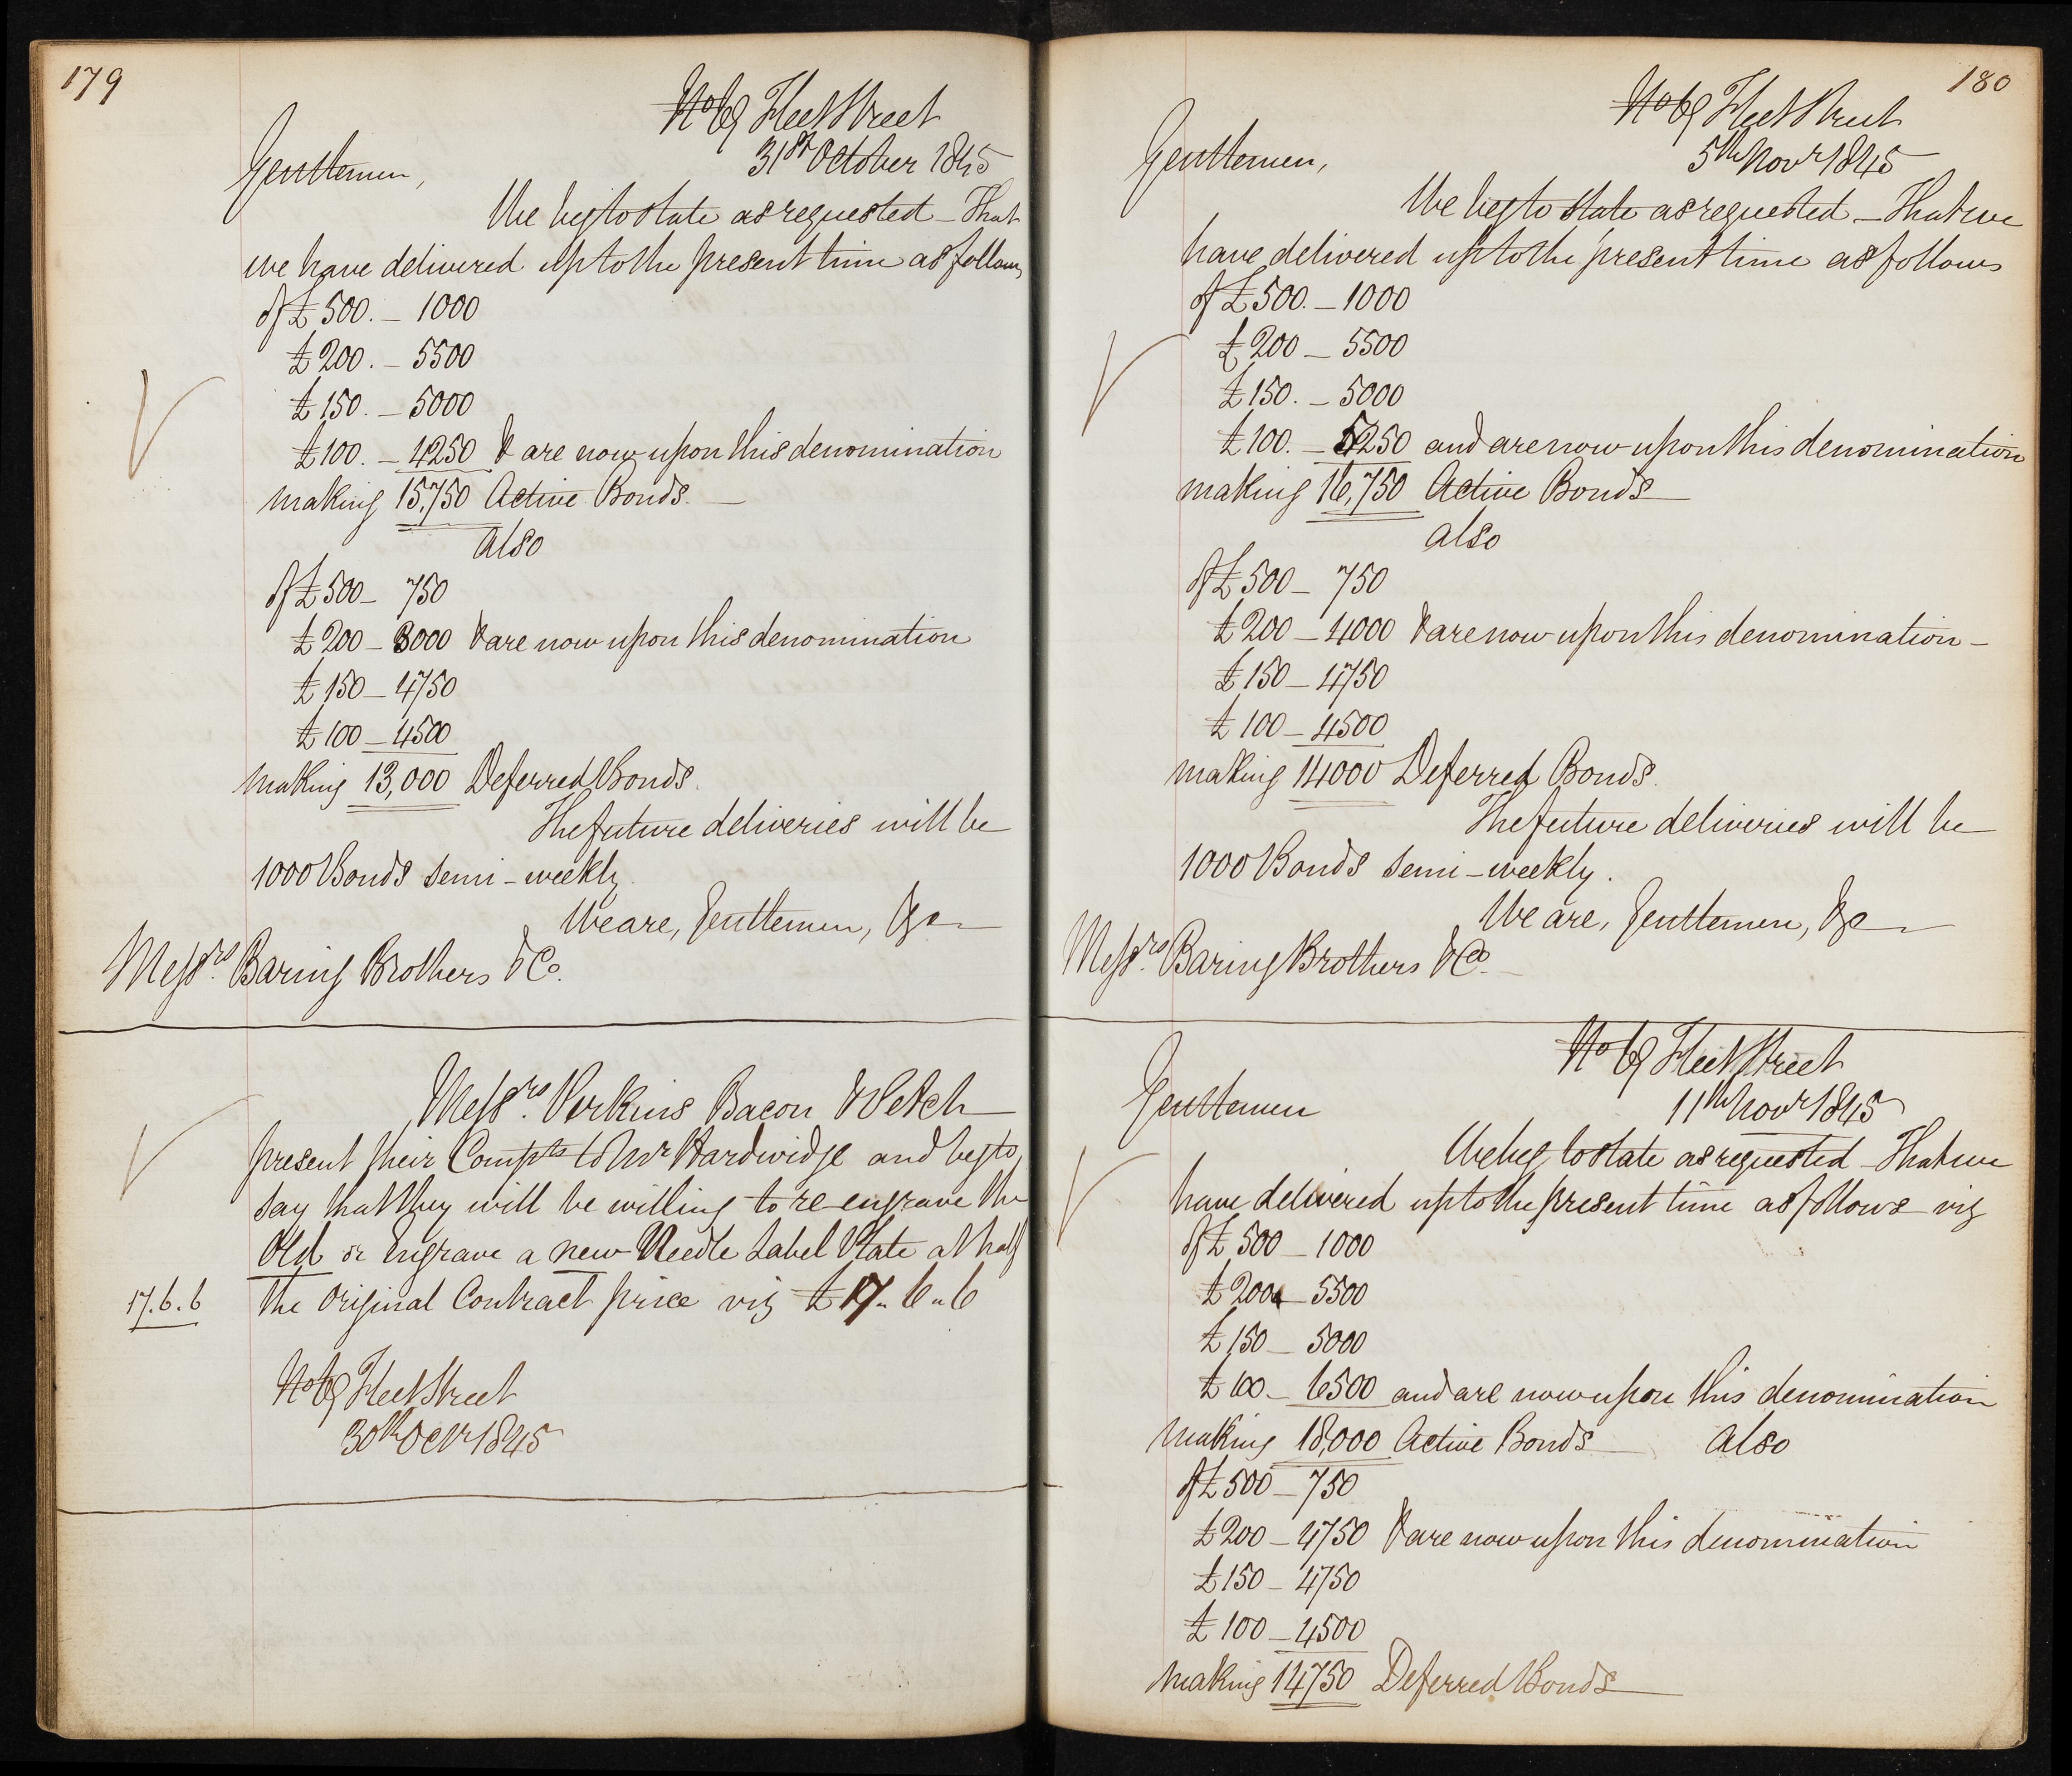 179
No 69 Fleet Street
31st October 1845
Gentlemen,
We beg to state as requested - That
we have delivered up to the present time as follows
of £500. - 1000
£200. - 5500
£150. - 5000
£100. - 4250 & are now upon this denomination
making 15,750 Active Bonds. -
also
of £500 - 750
£200 - 3000 & are now upon this denomination
£150 - 4750
£100 - 4500
making 13,000 Deferred Bonds.
The future deliveries will be
1000 Bonds semi-weekly.
We are, Gentlemen, &c
Messrs. Baring Brothers & Co.
Messrs. Perkins Bacon & Petch
present their Compts to Mr Hardwidge and beg to
say that they will be willing to re-engrave the
Old or Engrave a new Needle Label Plate at half
17.6.6 the Original Contract price viz £17. 6. 6
No 69 Fleet Street
30th Octr 1845
180
No 69 Fleet Street
5th Novr 1845
Gentlemen,
We beg to state as requested - That we
have delivered up to the present time as follows
of £500. - 1000
£200 - 5500
£150. - 5000
£100. - 5250 and are now upon this denomination
making 16,750 Active Bonds
also
of £500 - 750
£200 - 4000 & are now upon this denomination -
£150 - 4750
£100 - 4500
making 14000 Deferred Bonds.
The future deliveries will be
1000 Bonds semi-weekly.
We are, Gentlemen, &c
Messrs. Baring Brothers & Co.
No 69 Fleet Street
11th Novr 1845
Gentlemen
We beg to state as requested - That we
have delivered up to the present time as follows viz
of £500 - 1000
£200 - 5500
£150 - 5000
£100 - 6500 and are now upon this denomination
making 18,000 Active Bonds Also
of £500 - 750
£200 - 4750 & are now upon this denomination
£150 - 4750
£100 - 4500
making 14750 Deferred Bonds